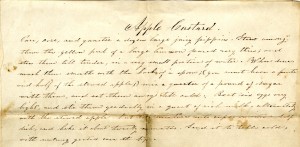 Apple Custard.
Pare, core, and quarter a dozen large juicy pippins. Strew among
them the yellow peel of a large lemon pared very thin; and
stew them till tender, in a very small portion of water. When done
mash them smooth with the back of a spoon; (you must have a pint and
half of the stewed apple;) mix a quarter of a pound of sugar
with them, and set them away till cold. Beat six eggs very
light, and stir them gradually into a quart of rich milk, alternately
with the stewed apple. Put
and bake it about twenty minutes. Send it to table cold,
with nutmeg grated over it.